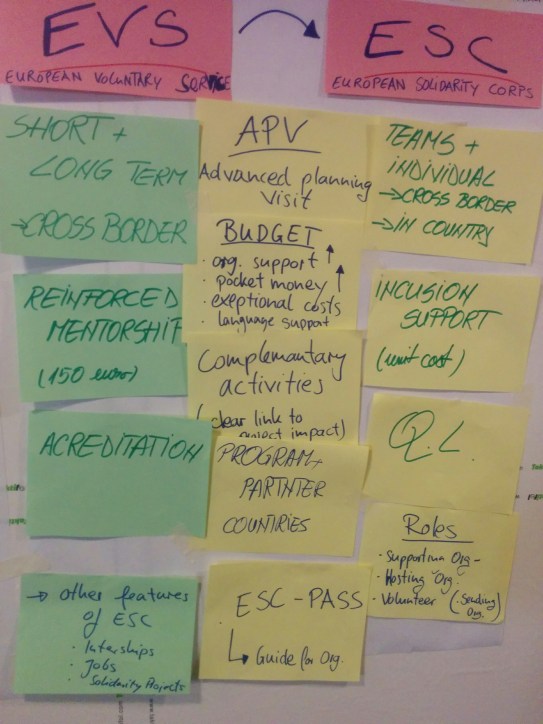 EVS
EUROPEAN VOLUNTARY SERVICE
ESC
EUROPEAN SOLIDARITY CORPS
SHORT +
LONG TERM
→CROSS BORDER
REINFORCED
MENTORSHIP
(150 euro)
ACREDITATION
→ other features
of ESC
· Interships
· Jobs
· Solidarity Projects
APV
Advanced planning
visit
BUDGET
· org. support ↑
· pocket money ↑
· exeptional costs
· language support
Complemantary
activities
(clear link to
project impact)
PROGRAM+
PARTNTER
COUNTRIES
ESC-PASS
↳ Guide for Org.
TEAMS +
INDIVIDUAL
→CROSS BORDER
→IN COUNTRY
INCUSION
SUPPORT
(unit cost)
Q.L.
Roles
· Supporting Org-
· Hosting Org.
· Volunteer (Sending
Org.)